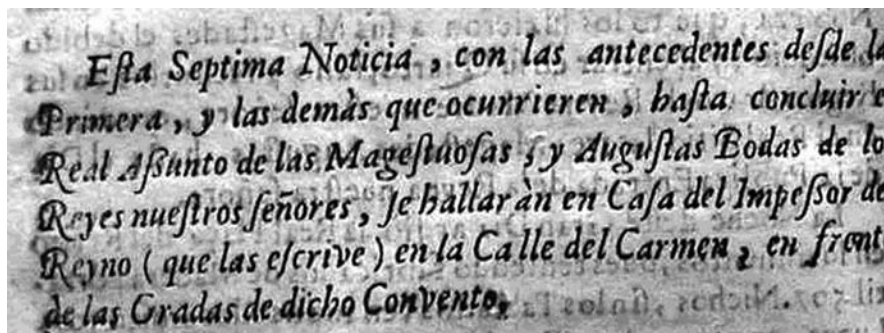 Eſta Septima Noticia, con las antecedentes deſde la
Primera, y las demàs que ocurrieren, haſta concluir e
Real Aſſunto de las Mageſtuoſas, y Auguſtas Bodas de lo
Reyes nueſtros ſeñores, ſe hallaràn en Caſa del Impeſſor de
Reyno (que las eſcrive) en la Calle del Carmen, en front
de las Gradas de dicho Convento.